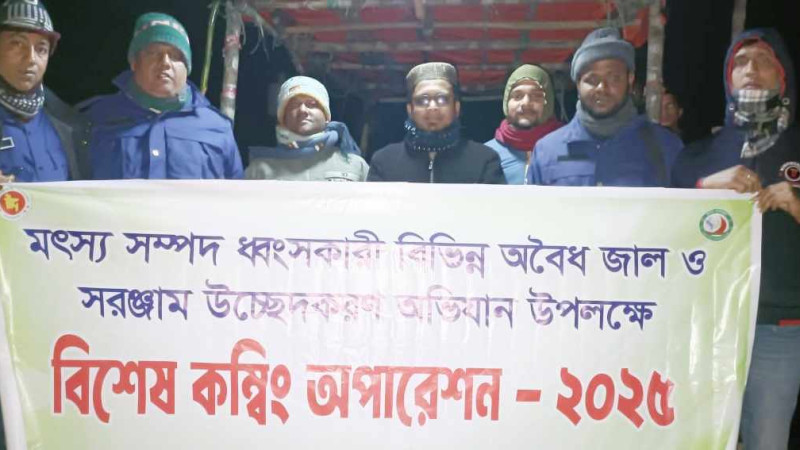 মৎস্য সম্পদ ধ্বংসকারী বিভিন্ন অবৈধ জাল ও
সরঞ্জাম উচ্ছেদকরণ অভিযান উপলক্ষে
বিশেষ কম্বিং অপারেশন - ২০২৫